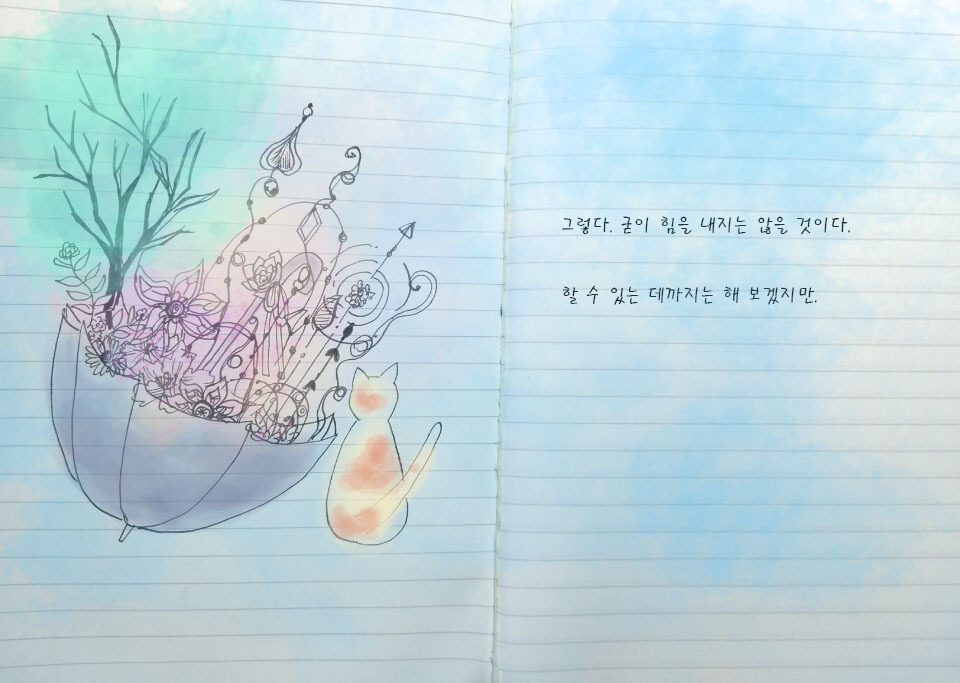 그렇다. 굳이 힘을 내지는 않을 것이다.
할 수 있는 데까지는 해 보겠지만.